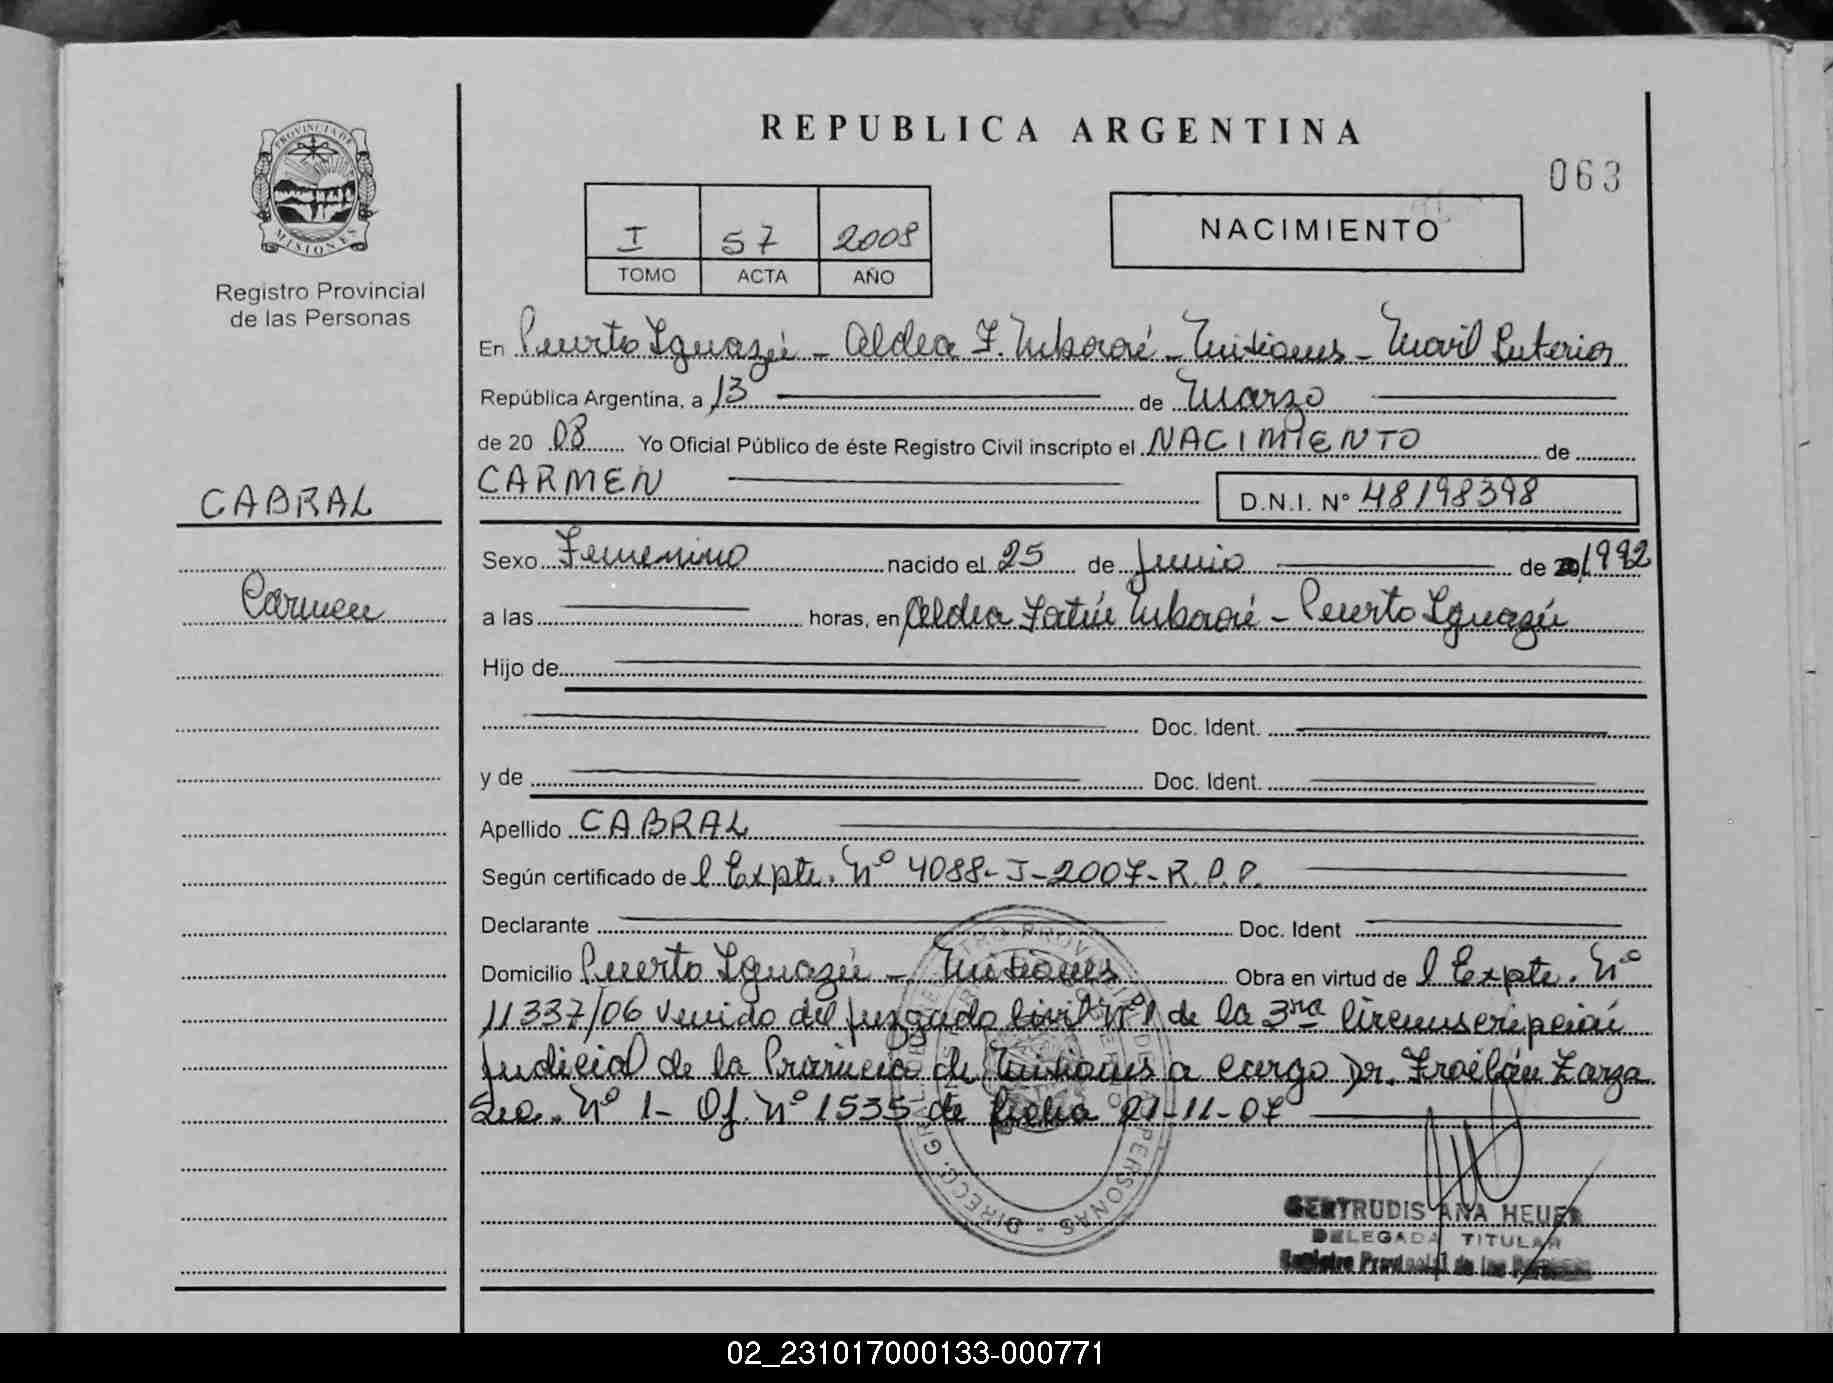 REPUBLICA ARGENTINA
063
PROVINCIA DE
MISIONES
Registro Provincial
de las Personas
I 57 2008
TOMO ACTA AÑO
NACIMIENTO
En Puerto Iguazú - Aldea F. Mbororé - Misiones - Movil Interior
República Argentina, a 13 de Marzo
de 20 08 Yo Oficial Público de éste Registro Civil inscripto el NACIMIENTO de
CARMEN D.N.I. Nº 48198398
CABRAL
Carmen
Sexo Femenino nacido el 25 de Junio de 1992
a las horas, en Aldea Fortín Mbororé - Puerto Iguazú
Hijo de
Doc. Ident.
y de Doc. Ident.
Apellido CABRAL
Según certificado de l Expte. Nº 4088-J-2007-R.P.P.
Declarante Doc. Ident
Domicilio Puerto Iguazú - Misiones Obra en virtud de l Expte. Nº
11337/06 venido del Juzgado Civil Nº 1 de la 3ra Circunscripción
Judicial de la Provincia de Misiones a cargo Dr. Froilán Zarza
Sec. Nº 1- Of. Nº 1535 de fecha 21-11-07
DIRECC. GRAL. DEL REGISTRO PROVINCIAL DE LAS PERSONAS
GERTRUDIS ANA HEUER
DELEGADA TITULAR
Registro Provincial de las Personas
02_231017000133-000771